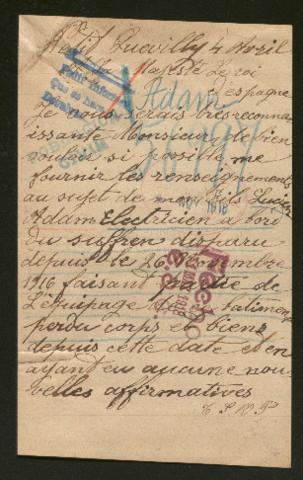 Petit Quevilly 4 Avril
Majesté le roi
d'espagne
Adam
Je vous serais très reconnai
issante Monsieur de bien
vouloir si possible me
fournir les renseignements
au sujet de fils Lucien
1918
Adam Electricien a bord
du suffren disparu
depuis le 26 Novembre
1916 faisant partie de
l'équipage du batiment
perdu corps et biens
depuis cette date et en
ayant eu aucune nou
velles affirmatives
T S V P